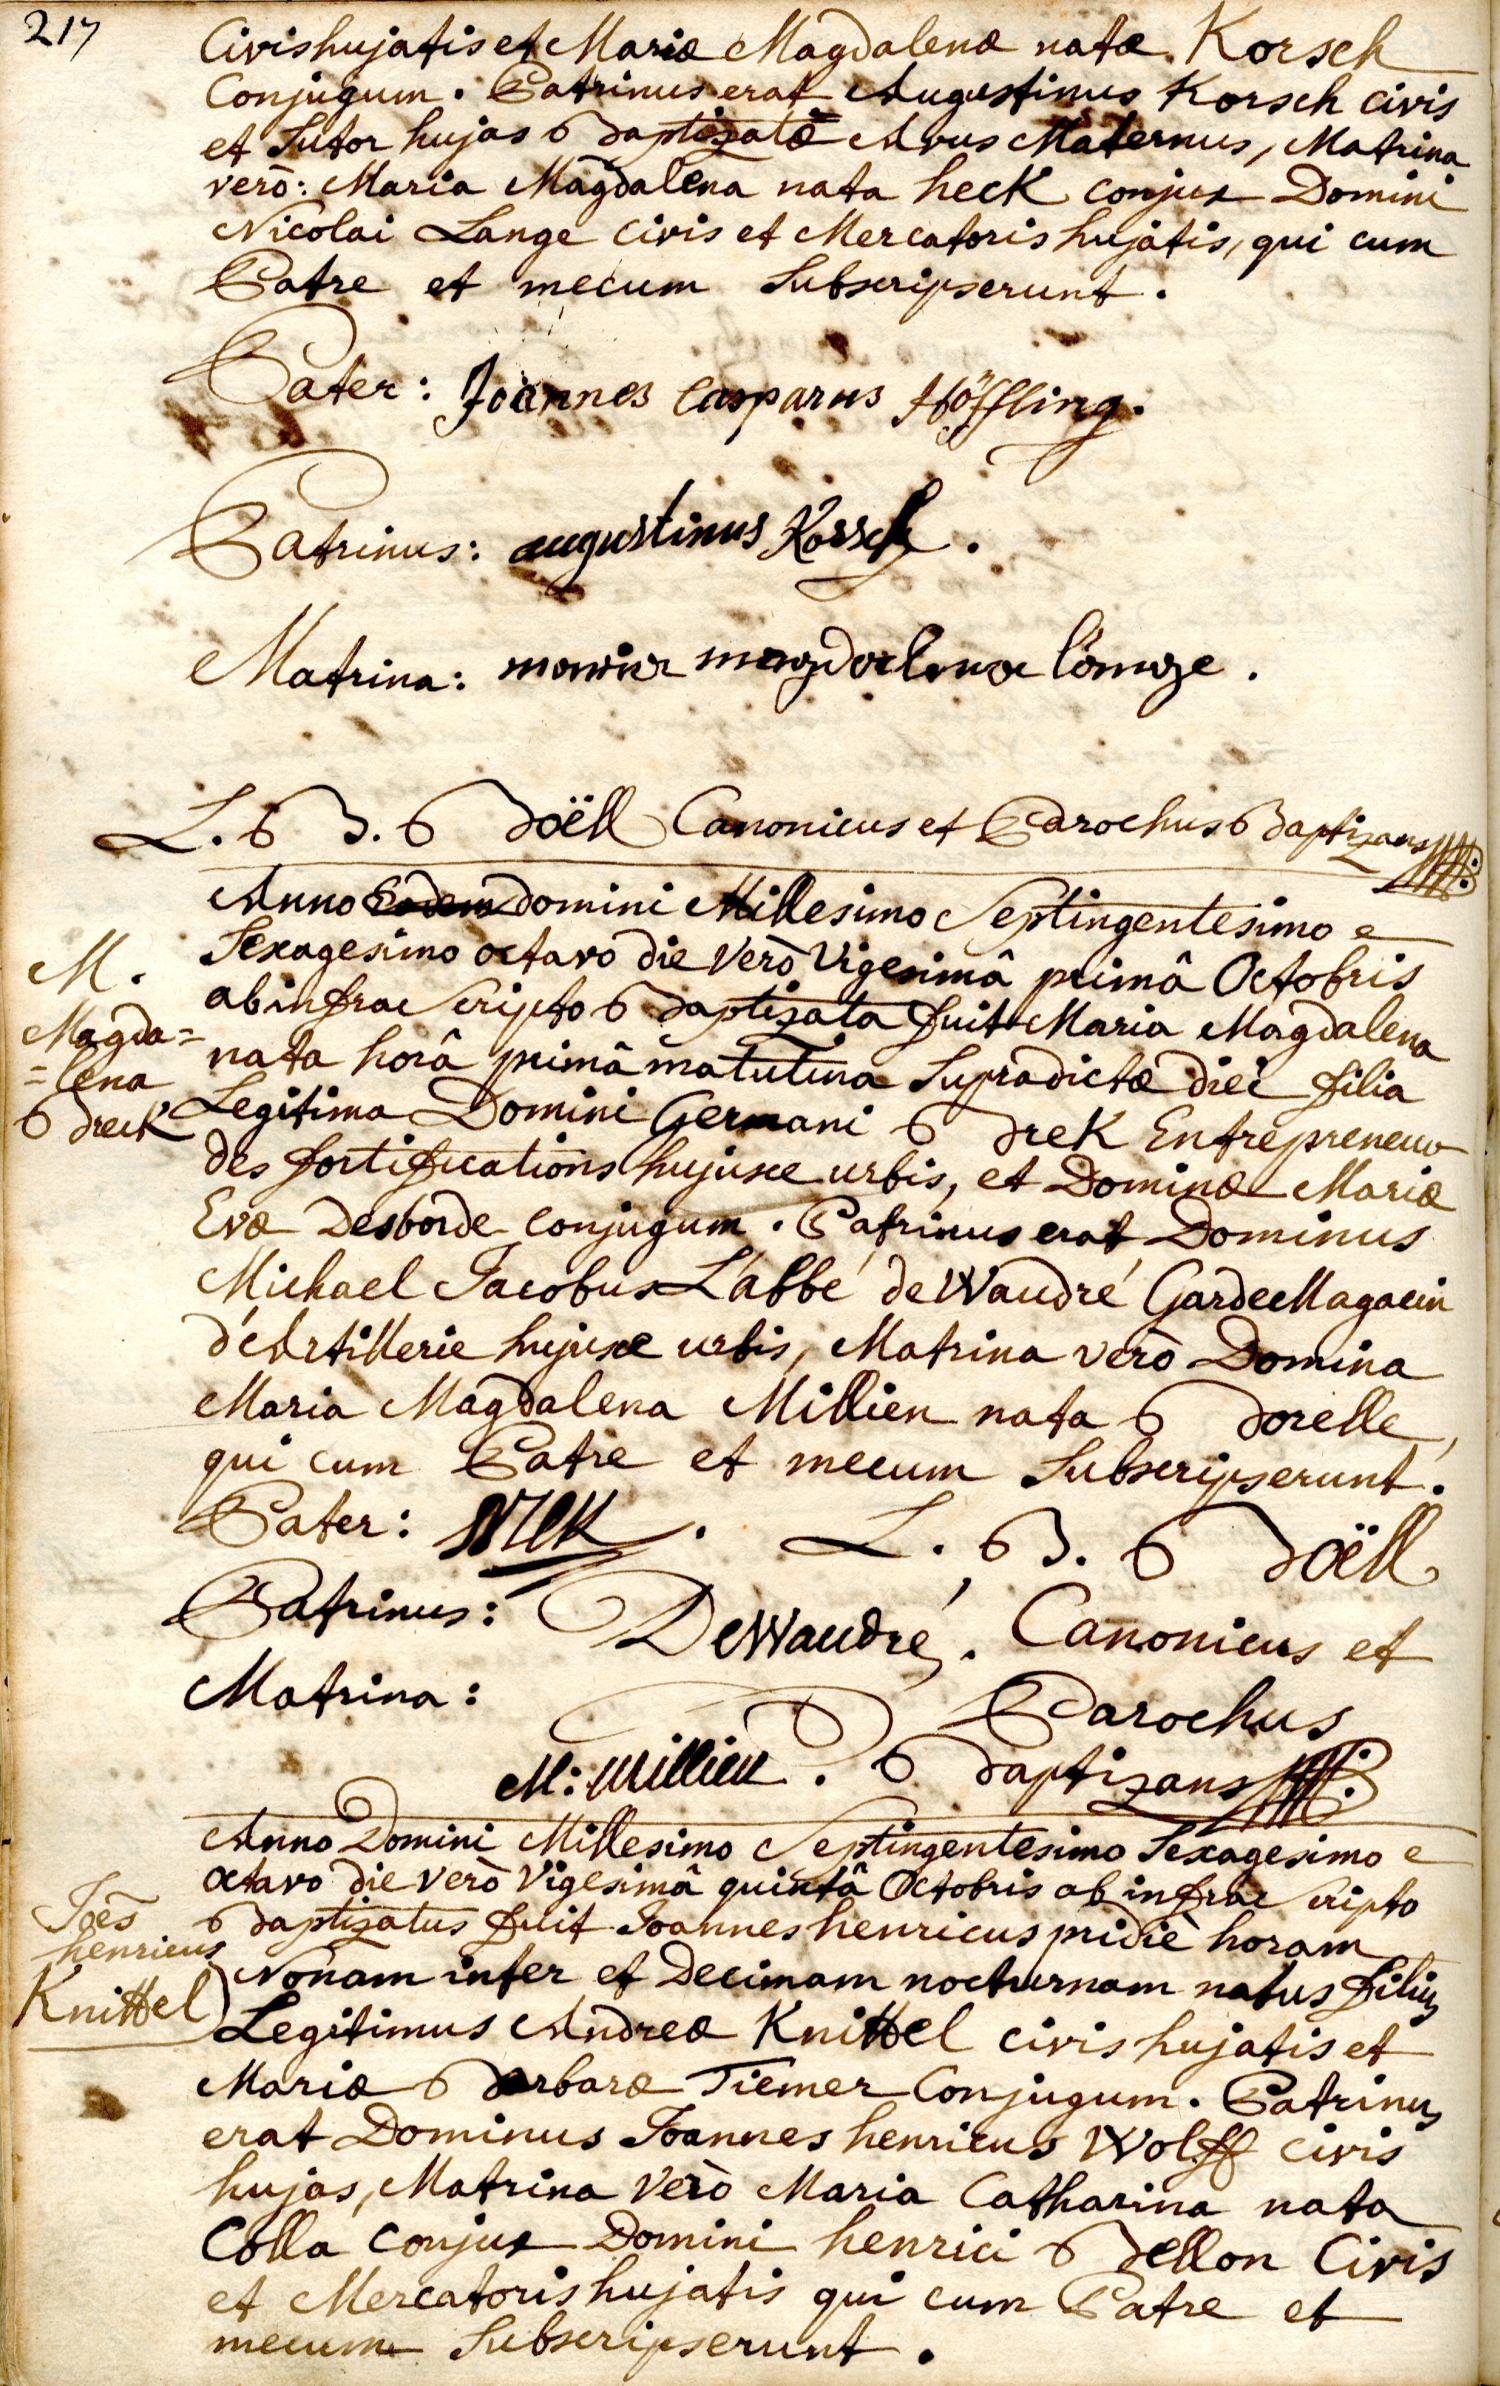 217
Civis hujatis et Mariæ Magdalenæ natæ Korsch
Conjugum. Patrinus erat Augustinus Korsch civis
et Sutor hujas Baptizatæ Avus Maternus, Matrina
verò: Maria Magdalena nata heck conjux Domini
Nicolai Lange civis et Mercatoris hujatis, qui cum
Patre et mecum Subscripserunt.
Pater: Joannes Casparus Höffling.
Patrinus: augustinus Korsch.
Matrina: maria magdalena lange.
L. B. Boëll Canonicus et Parochus Baptizans
Anno Eodem domini Millesimo Septingentesimo
Sexagesimo octavo die Verò Vigesimâ primâ Octobris
M.
ab infrac Scripto Baptizata fuit Maria Magdalena
Magda=
nata horâ primâ matutina Supradictæ diei filia
=lena
Legitima Domini Germani Brek Entrepreneur
Breck
des fortifications hujusce urbis, et Dominæ Mariæ
Evæ Desborde conjugum. Patrinus erat Dominus
Michael Jacobus L'abbé de Waudré Garde Magacin
d'Artillerie hujusce urbis, Matrina verò Domina
Maria Magdalena Millien nata Borelle,
qui cum Patre et mecum Subscripserunt.
Pater: Brek. L. B. Boëll
Patrinus: De Waudré. Canonicus et
Matrina: Parochus
M: Millien. Baptizans
Anno Domini Millesimo Septingentesimo Sexagesimo
octavo die verò Vigesimâ quintâ Octobris ab infrac Scripto
Joēs
Baptizatus fuit Joannes henricus pridiè horam
henricus
Nonam inter et Decimam nocturnam natus filius
Knittel
Legitimus Andreæ Knittel civis hujatis et
Mariæ Barbaræ Tiemer Conjugum. Patrinus
erat Dominus Joannes henricus Wolff civis
hujas, Matrina Verò Maria Catharina nata
Colla conjux Domini henrici Bellon Civis
et Mercatoris hujatis qui cum Patre et
mecum Subscripserunt.